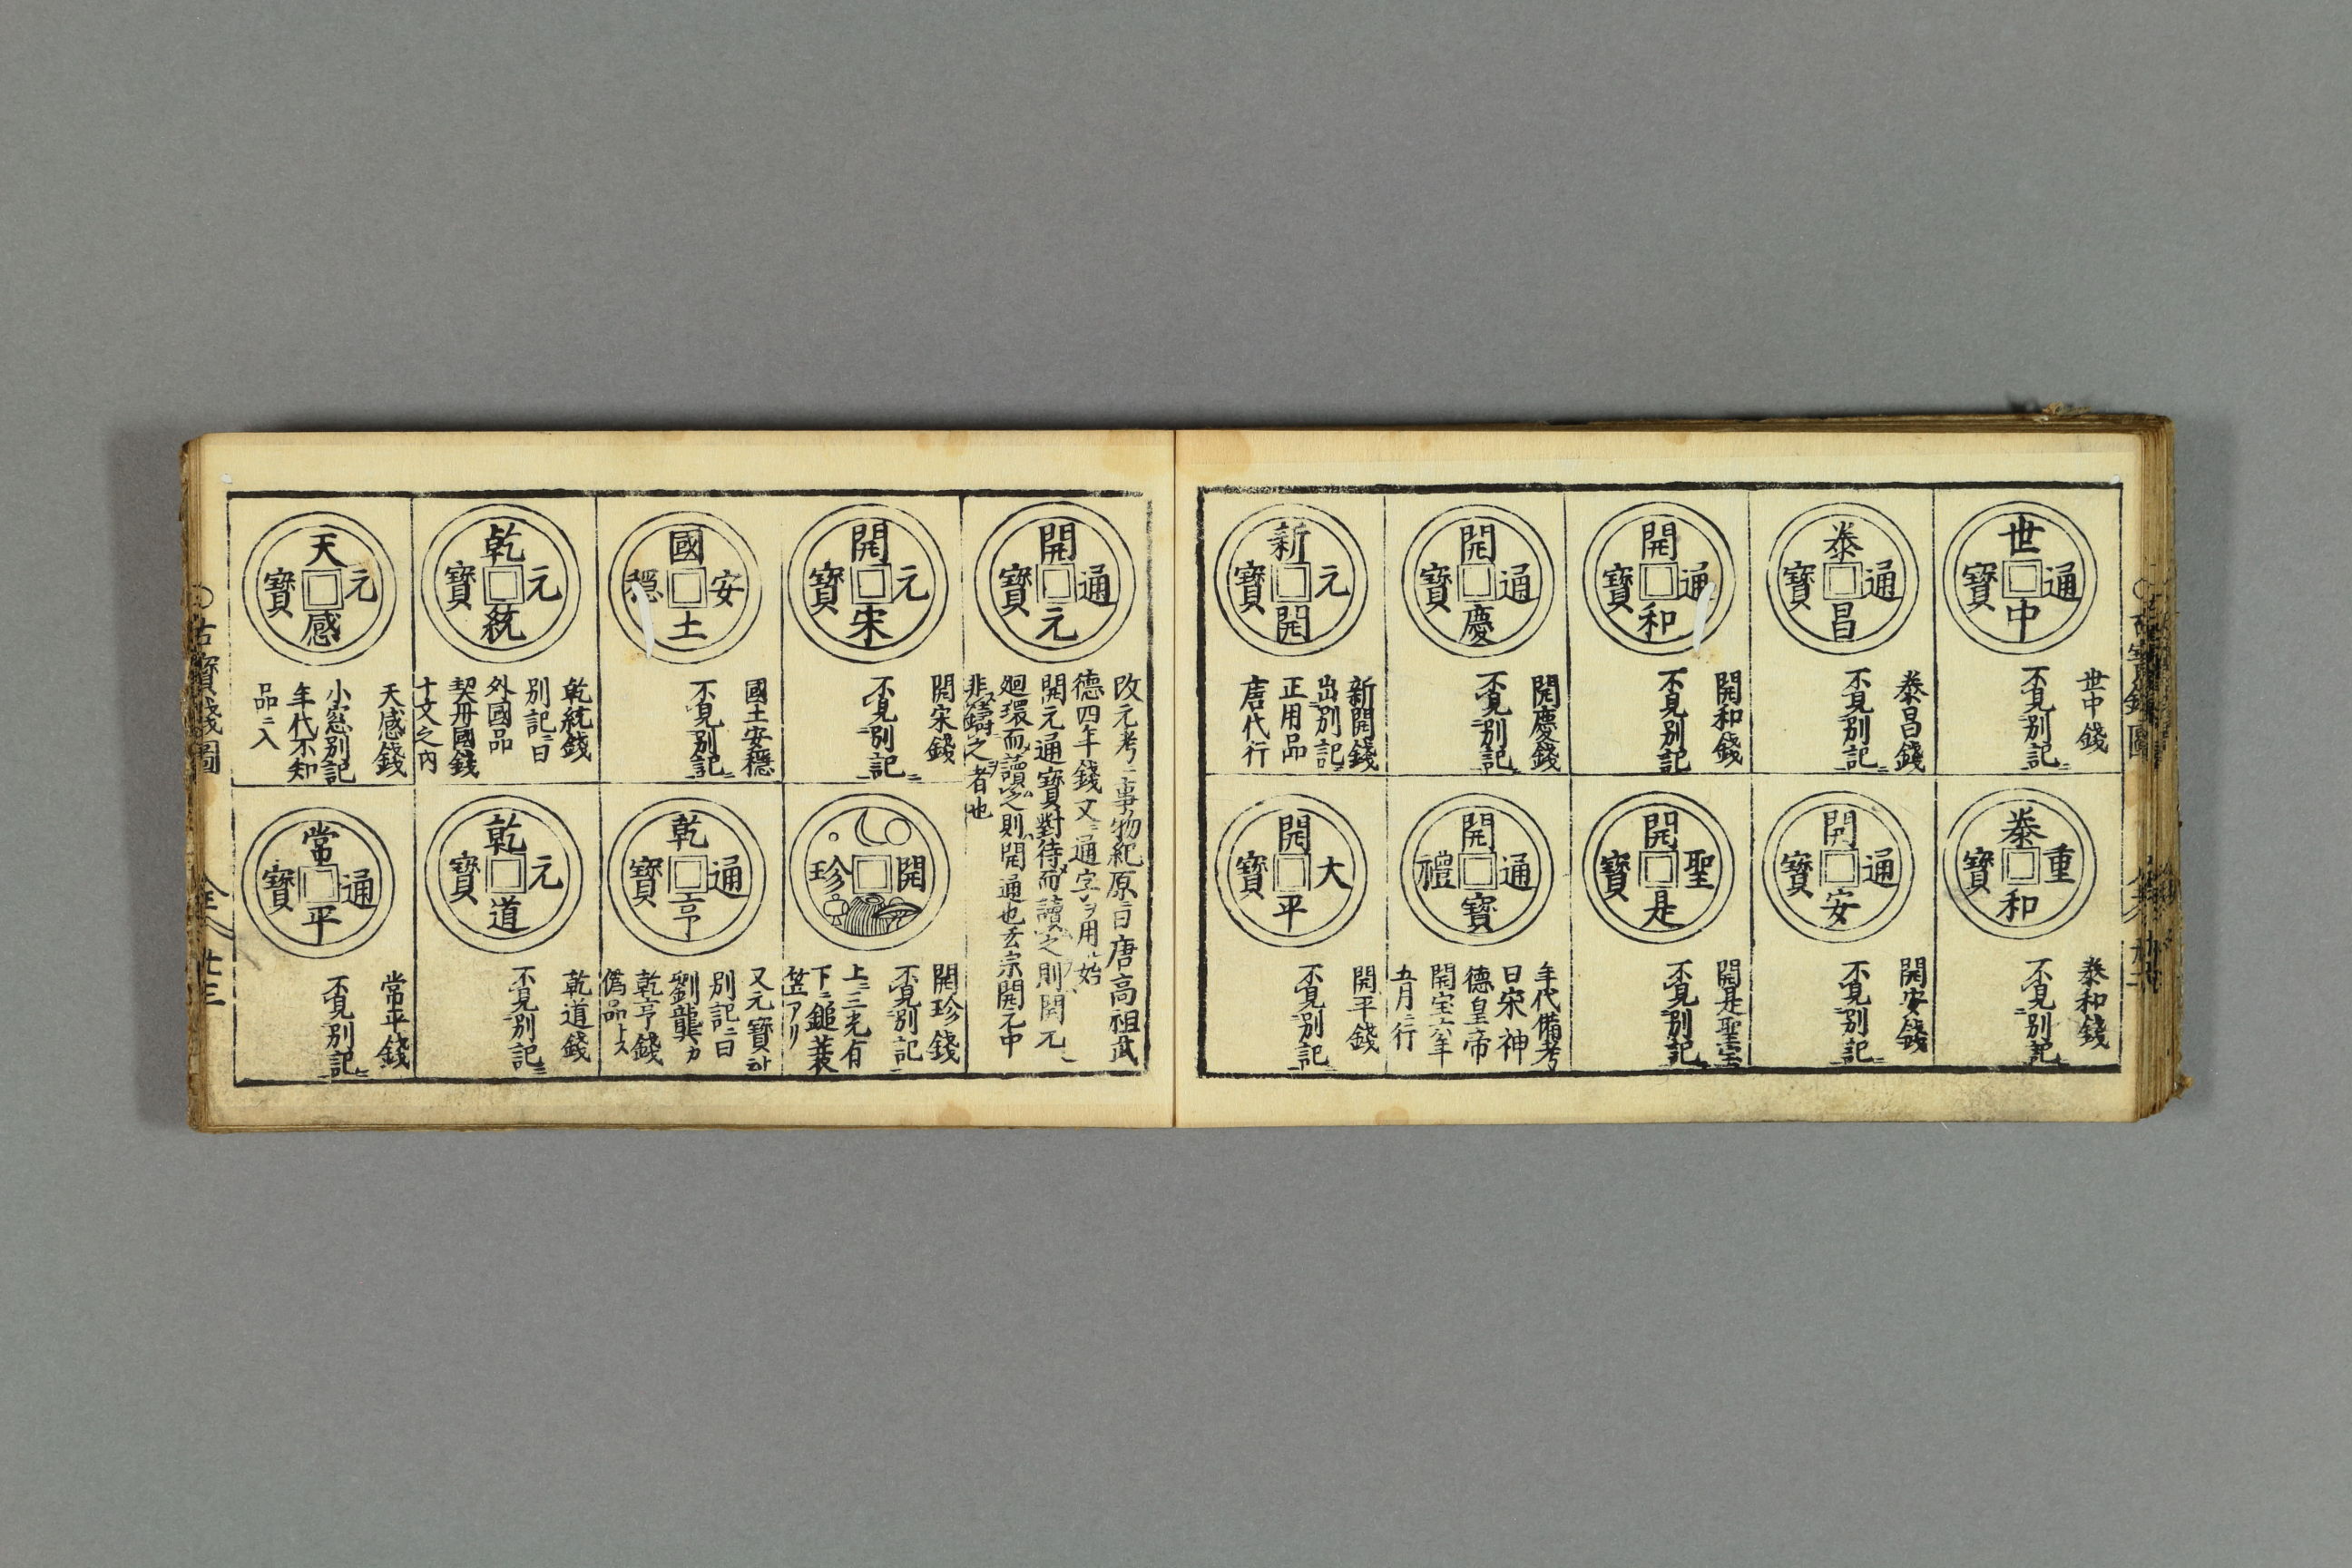 世中通寶
世中錢
不見別記ニ
泰和重寶
泰和錢
不見別記ニ
泰昌通寶
泰昌錢
不見別記ニ
開安通寶
開安錢
不見別記ニ
開和通寶
開和錢
不見別記ニ
開是聖寶
開是聖宝
不見別記ニ
開慶通寶
開慶錢
不見別記ニ
開寶通禮
年代備考
曰宋神
德皇帝
開宝六年
五月ニ行
新開元寶
新開錢
出別記ニ
正用品
唐代行
開平大寶
開平錢
不見別記
開元通寶
改元考ニ事物紀原ニ曰唐高祖武
德四年錢文ニ通字ヲ用始
開元通寶對待而讀之則開元
廻環而讀之則開通也玄宗開元中
非鑄之者也
開宋元寶
開宋錢
不見別記ニ
開珍
開珍錢
不見別記
上ニ三光有
下ニ鎚蓑
笠アリ
國土安穩
國土安穩
不見別記ニ
乾亨通寶
又元寶
別記ニ曰
劉龔カ
乾亨錢
偽品トス
乾統元寶
乾統錢
別記ニ曰
外國品
契丹國錢
十文之内
乾道元寶
乾道錢
不見別記ニ
天感元寶
天感錢
小窓別記
年代不知
品ニ入
常平通寶
常平錢
不見別記ニ
古寶錢圖
全
廿三